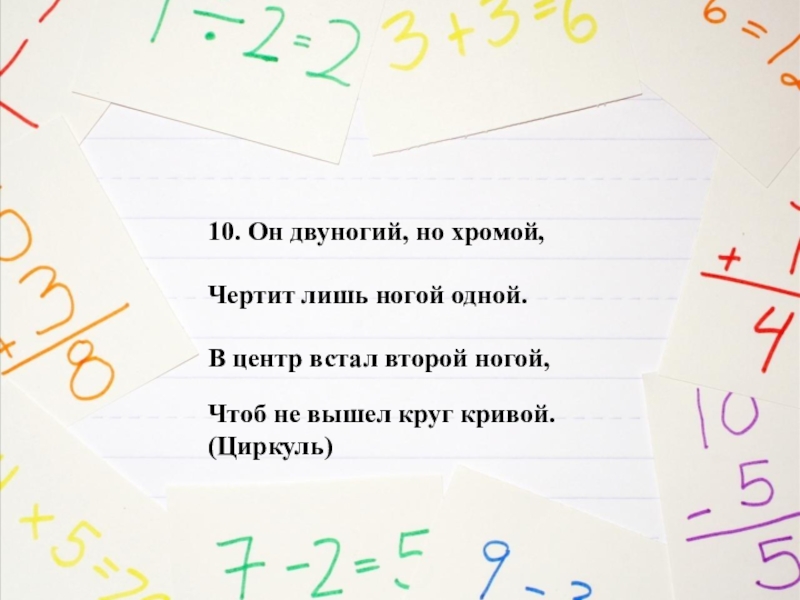 1 ÷ 2 = 2
3 + 3 = 6
6 =
10. Он двуногий, но хромой,
Чертит лишь ногой одной.
В центр встал второй ногой,
Чтоб не вышел круг кривой.
(Циркуль)
3
8
+
4
10
- 5
5
+ 5 =
7 - 2 = 5
9 -